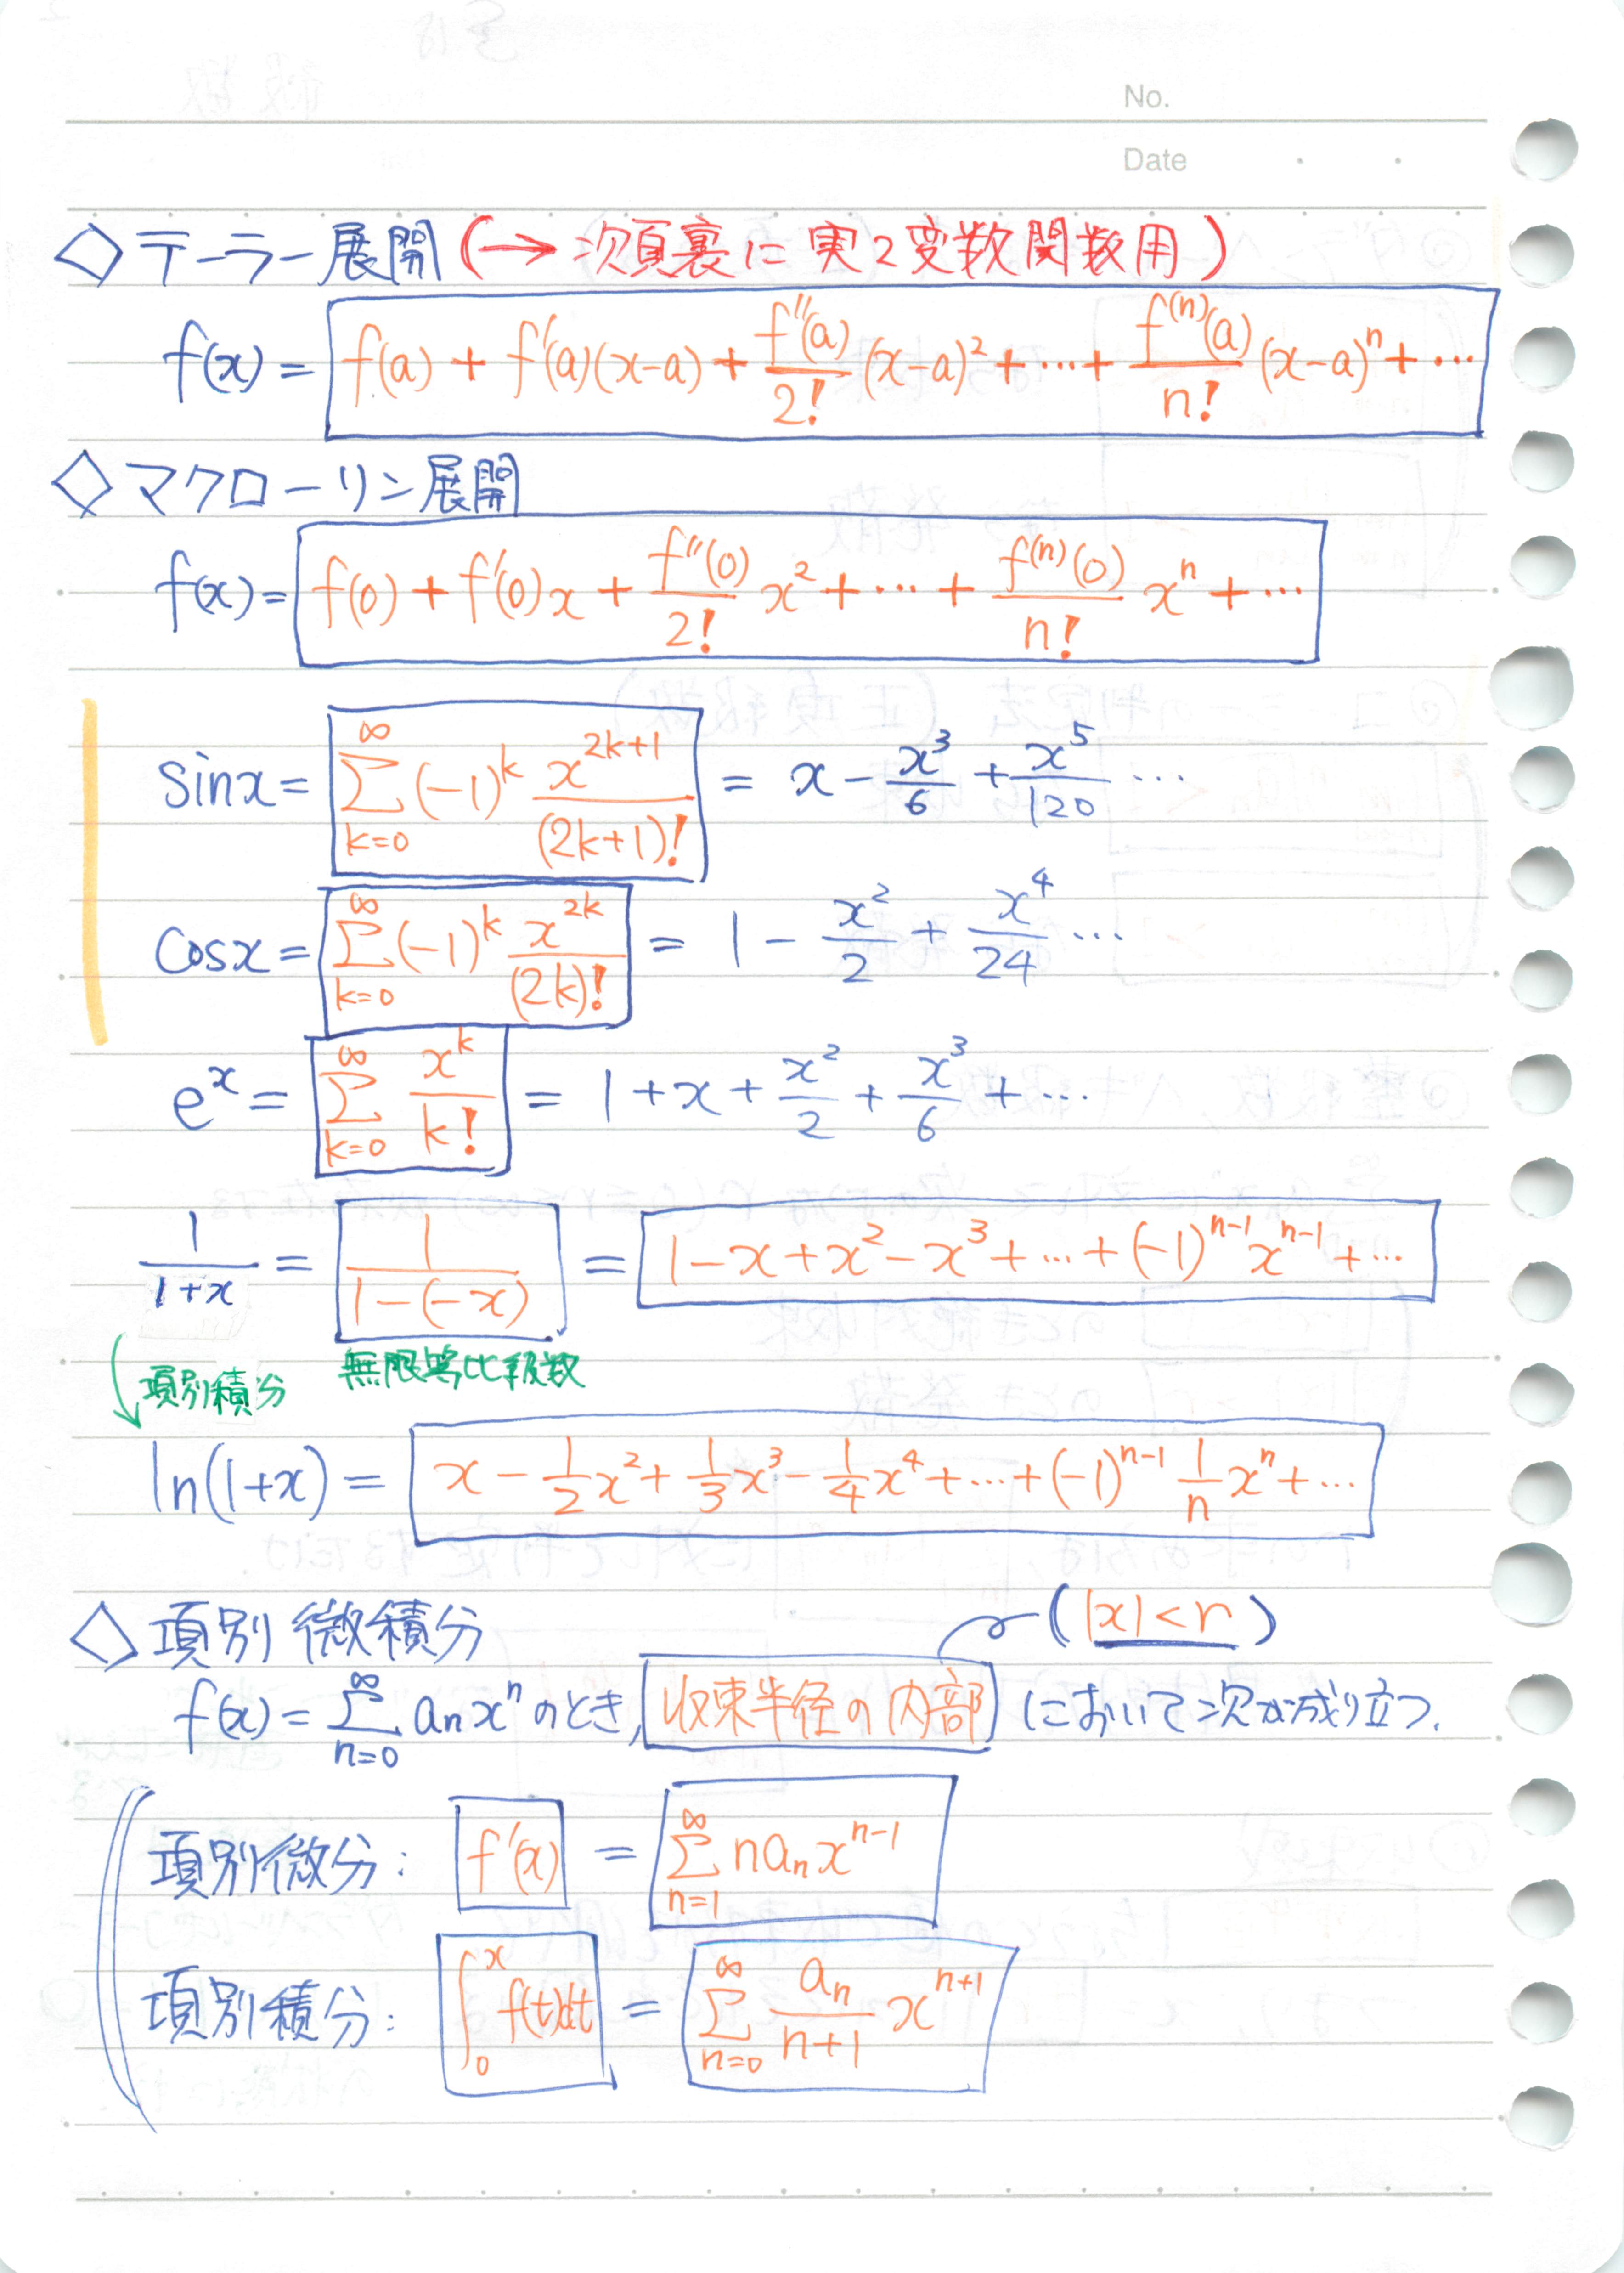 No.
Date
◇テーラー展開(→次頁裏に実2変数関数用)
f(x) = f(a) + f'(a)(x-a) + f''(a)/2! (x-a)² + … + f⁽ⁿ⁾(a)/n! (x-a)ⁿ + …
◇マクローリン展開
f(x) = f(0) + f'(0)x + f''(0)/2! x² + … + f⁽ⁿ⁾(0)/n! xⁿ + …
sinx = ∑_{k=0}^{∞} (-1)^k x^{2k+1}/(2k+1)! = x - x³/6 + x⁵/120 …
cosx = ∑_{k=0}^{∞} (-1)^k x^{2k}/(2k)! = 1 - x²/2 + x⁴/24 …
e^x = ∑_{k=0}^{∞} x^k/k! = 1 + x + x²/2 + x³/6 + …
1/(1+x) = 1/(1-(-x)) = 1 - x + x² - x³ + … + (-1)^{n-1} x^{n-1} + …
項別積分 無限等比級数
ln(1+x) = x - 1/2 x² + 1/3 x³ - 1/4 x⁴ + … + (-1)^{n-1} 1/n xⁿ + …
◇項別微積分 (|x| < r)
f(x) = ∑_{n=0}^{∞} a_n xⁿ のとき, 収束半径の内部 において次が成り立つ.
項別微分: f'(x) = ∑_{n=1}^{∞} n a_n x^{n-1}
項別積分: ∫_0^x f(t)dt = ∑_{n=0}^{∞} a_n/(n+1) x^{n+1}